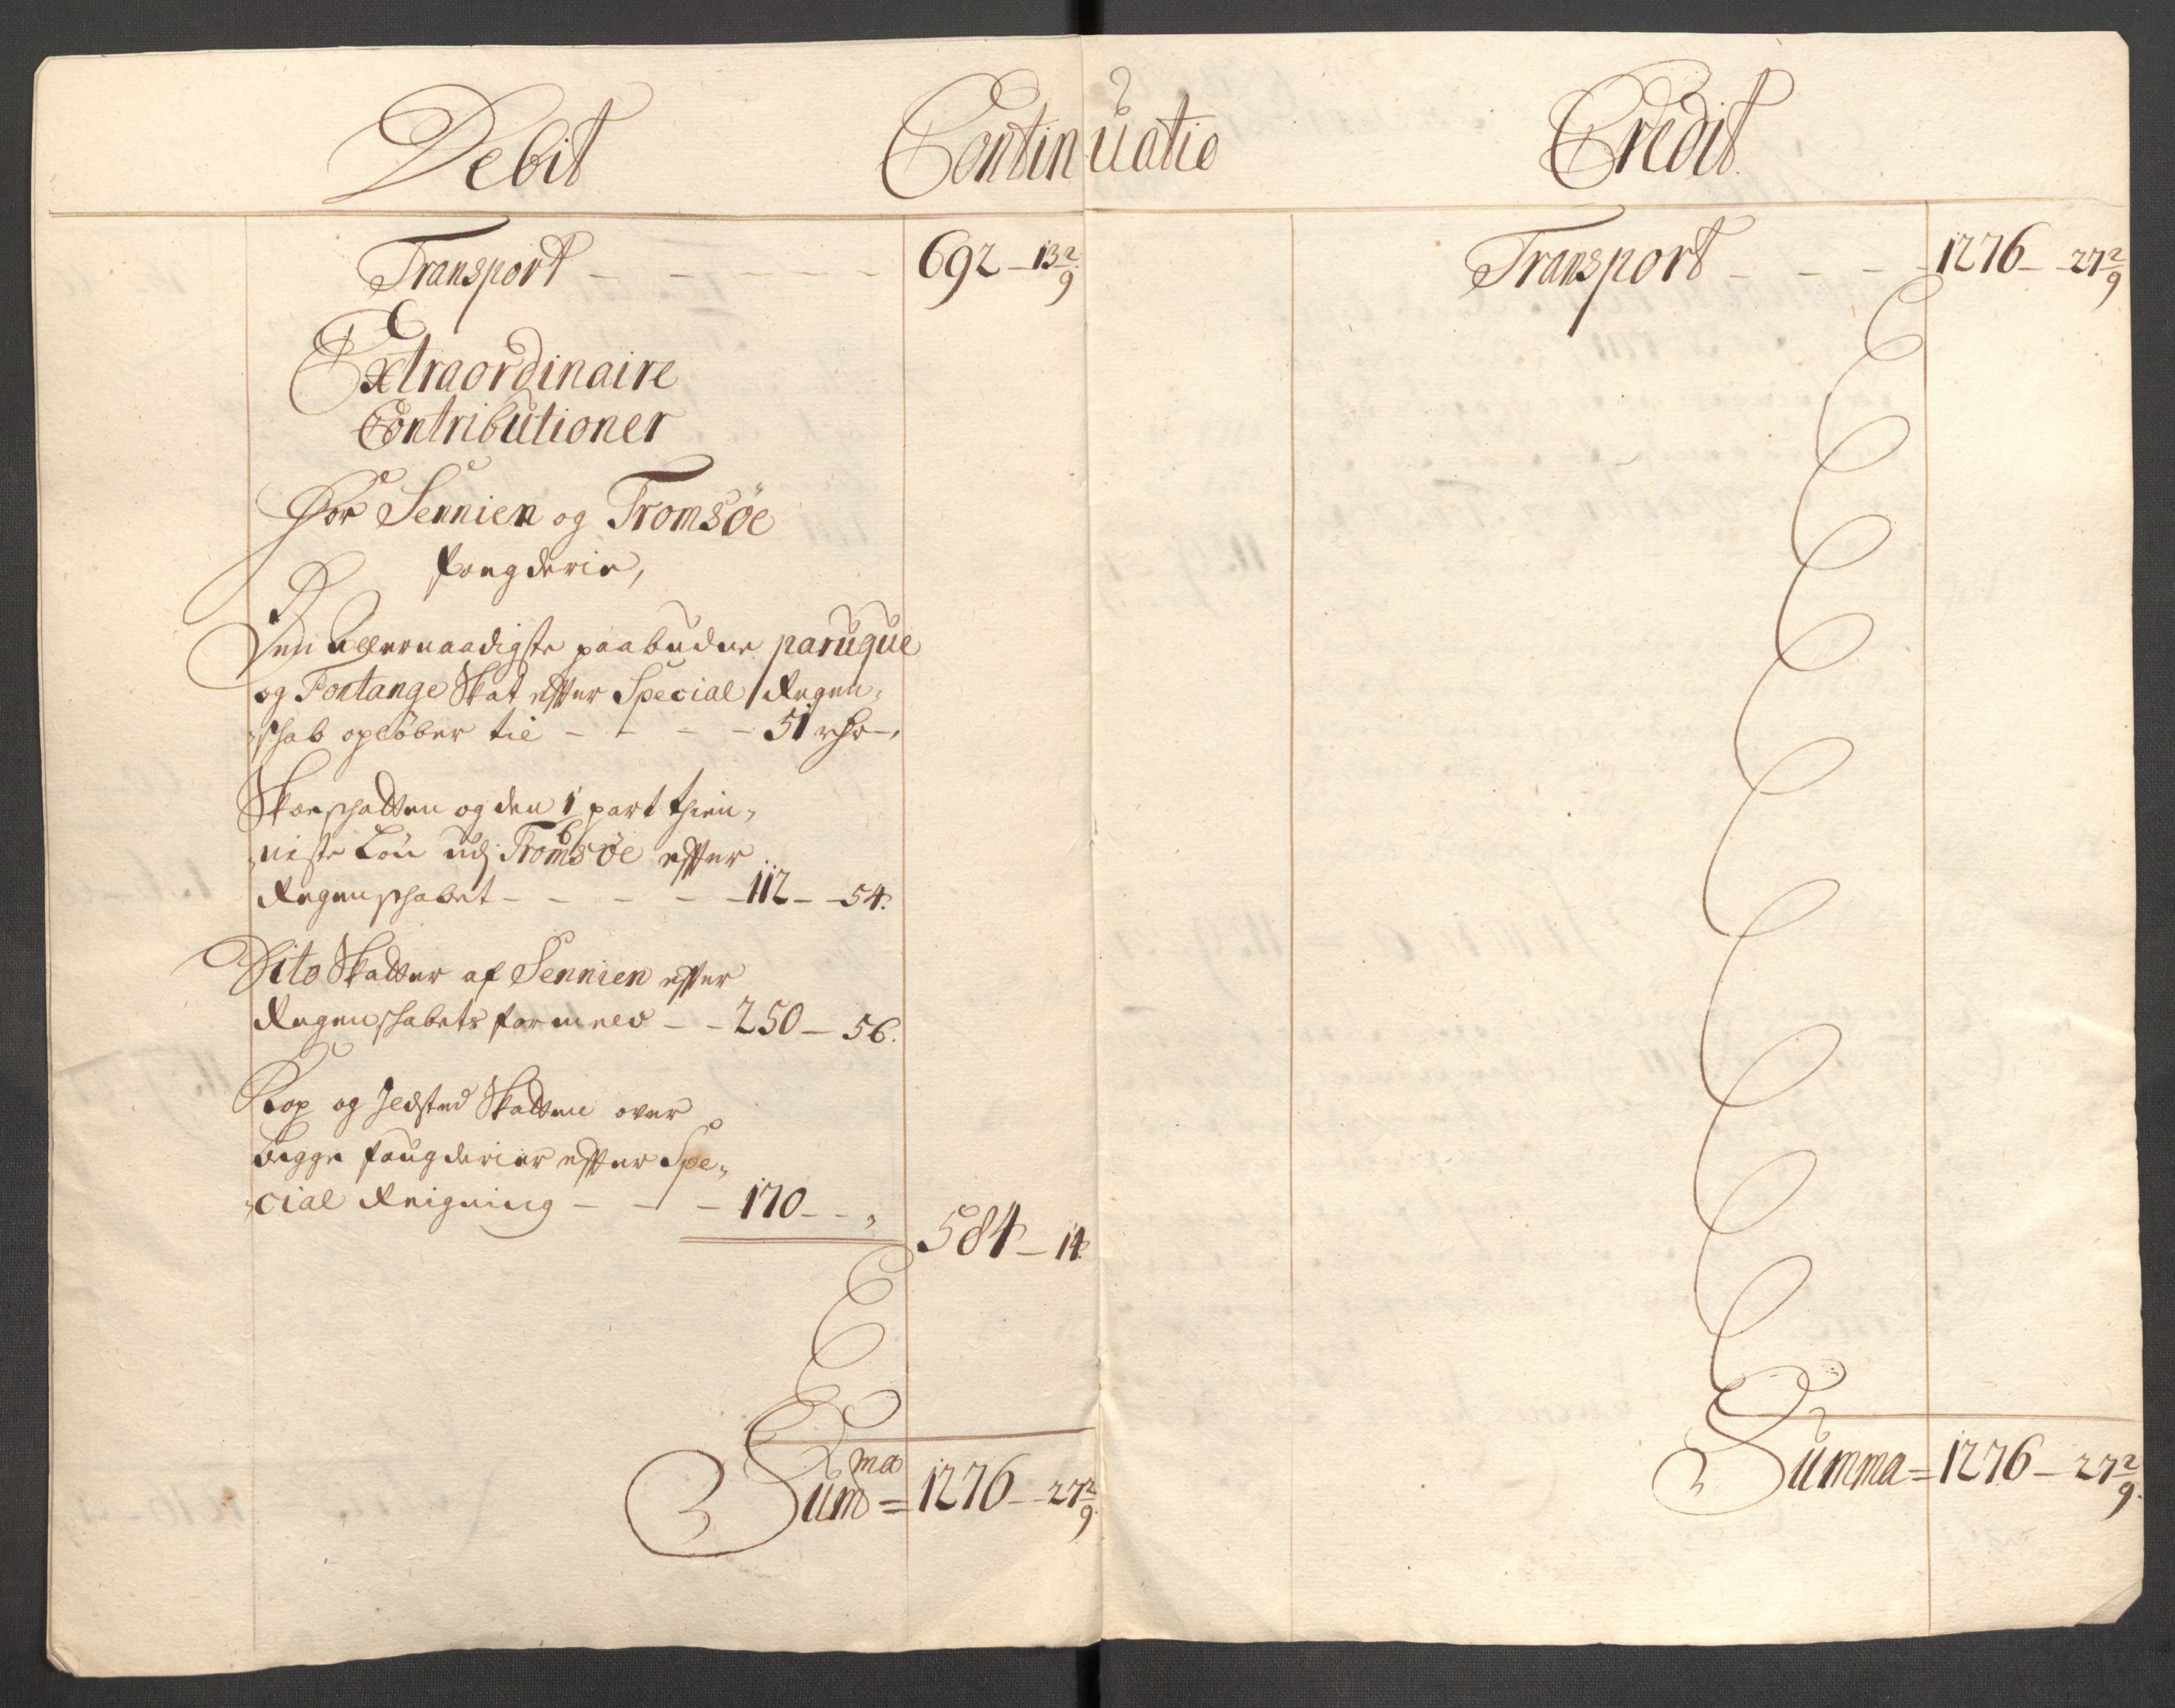 Debit Continuatio Credit
Transport - - - - - 692 - 13 2/9
Extraordinaire
Contributioner
For Sennien og Tromsöe
fougderie,
Den allernaadigste paabudne paruque
og Fontange Skat effter Special Regen,,
,,schab opløber til - - - - 51 rdr -,
Skoeschatten og den 1/6 part thien,,
,,niste Løn udj Tromsöe effter
Regenschabet - - - - - 112 - - 54.
Dito Skatter af Sennien effter
Regenschabets formeld - - 250 - 56.
Kop og Ildsted Skatten over
begge fougderier effter Spe,,
,,cial Reigning - - - 170 - - ,, 584 - 14.
Summa = 1276 - - 27 2/9.
Transport - - - - 1276 - - 27 2/9
Summa = 1276 - 27 2/9.